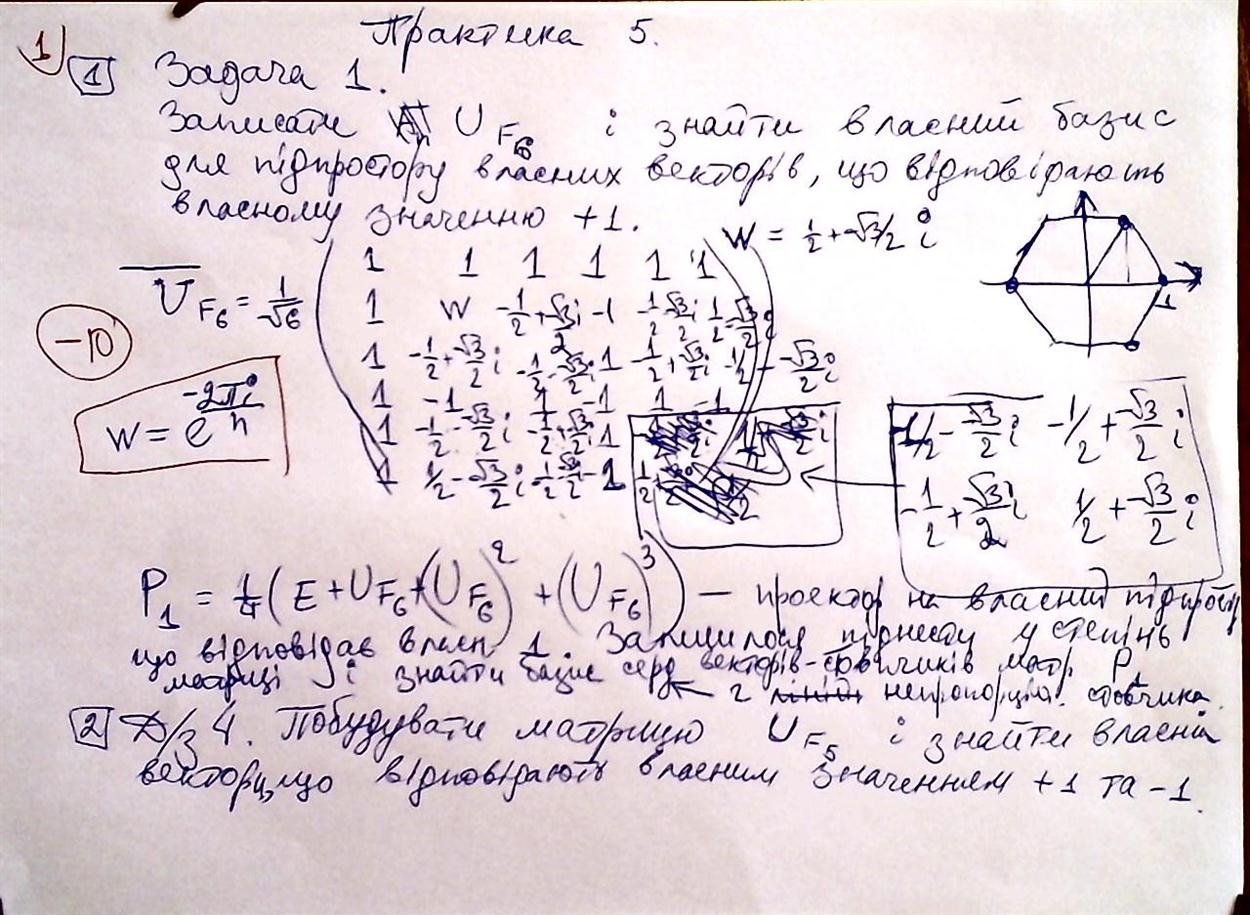 Практика 5.
1) 1 Задача 1.
Записати U F₆ і знайти власний базис
для підпростору власних векторів, що відповідають
власному значенню +1.
W = 1/2 + √3/2 i
U F₆ = 1/√6
1 1 1 1 1 1
1 W -1/2 + √3/2 i -1 -1/2 - √3/2 i 1/2 - √3/2 i
1 -1/2 + √3/2 i -1/2 - √3/2 i 1 -1/2 + √3/2 i -1/2 - √3/2 i
1 -1 1 -1 1 -1
1 -1/2 - √3/2 i -1/2 + √3/2 i 1
1 1/2 - √3/2 i -1/2 - √3/2 -1
1
-10
W = e^(-2πi/n)
-1/2 - √3/2 i -1/2 + √3/2 i
-1/2 + √3/2 i 1/2 + √3/2 i
P₁ = 1/4 (E + U F₆ + (U F₆)² + (U F₆)³) — проектор на власний підпростір
що відповідає власн. 1. Залишилося піднести у степінь
матриці і знайти базис серед векторів-стовпчиків матр P₁
← 2 непропорційн. стовпчика.
2 Д/з 4. Побудувати матрицю U F₅ і знайти власні
вектори, що відповідають власним значенням +1 та -1.